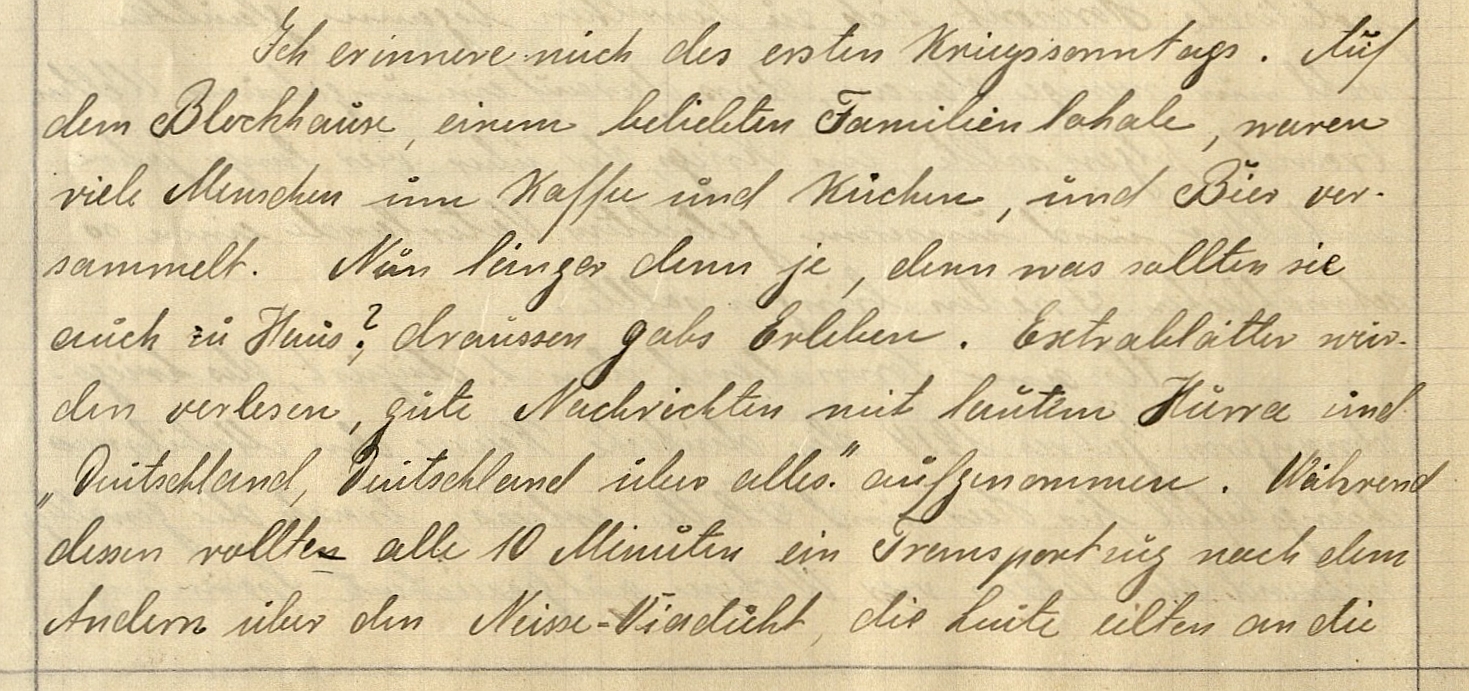 Ich erinnere mich des ersten Kriegssonntags. Auf
dem Blockhause, einem beliebten Familienlokale, waren
viele Menschen um Kaffee und Kuchen, und Bier ver-
sammelt. Nun länger denn je, denn was sollten sie
auch zu Haus?, draussen gabs Erleben. Extrablätter wur-
den verlesen, gute Nachrichten mit lautem Hurra und
„Deutschland, Deutschland über alles." aufgenommen. Während
dessen rollten alle 10 Minuten ein Transportzug nach dem
Andern über den Neisse-Viadukt, die Leute eilten an die